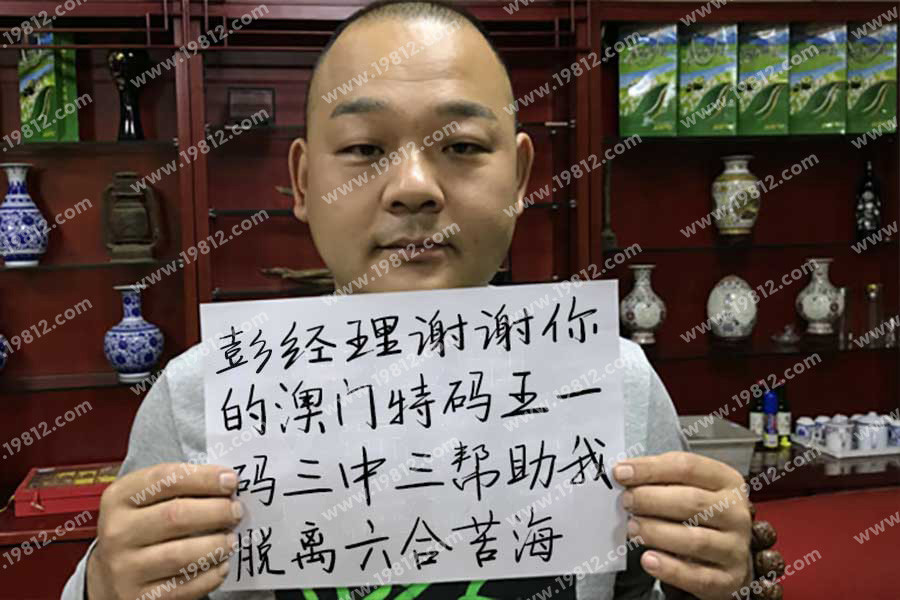 彭经理谢谢你
的澳门特码王一
码三中三帮助我
脱离六合苦海
www.19812.com